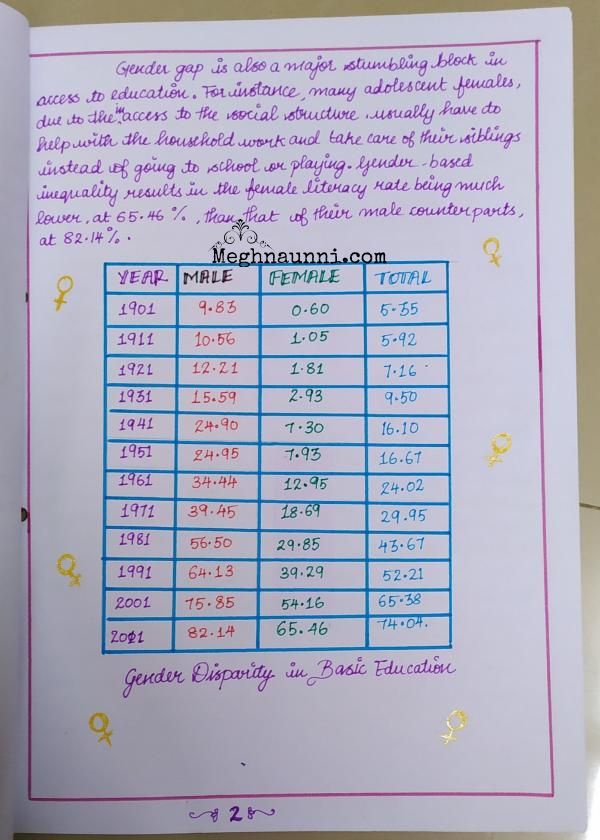 Gender gap is also a major stumbling block in
access to education. For instance, many adolescent females,
due to the in access to the social structure usually have to
help with the household work and take care of their siblings
instead of going to school or playing. Gender-based
inequality results in the female literacy rate being much
lower, at 65.46%, than that of their male counterparts,
at 82.14%.
Meghnaunni.com
YEAR MALE FEMALE TOTAL
1901 9.83 0.60 5.35
1911 10.56 1.05 5.92
1921 12.21 1.81 7.16
1931 15.59 2.93 9.50
1941 24.90 7.30 16.10
1951 24.95 7.93 16.67
1961 34.44 12.95 24.02
1971 39.45 18.69 29.95
1981 56.50 29.85 43.67
1991 64.13 39.29 52.21
2001 75.85 54.16 65.38
2011 82.14 65.46 74.04.
Gender Disparity in Basic Education
2